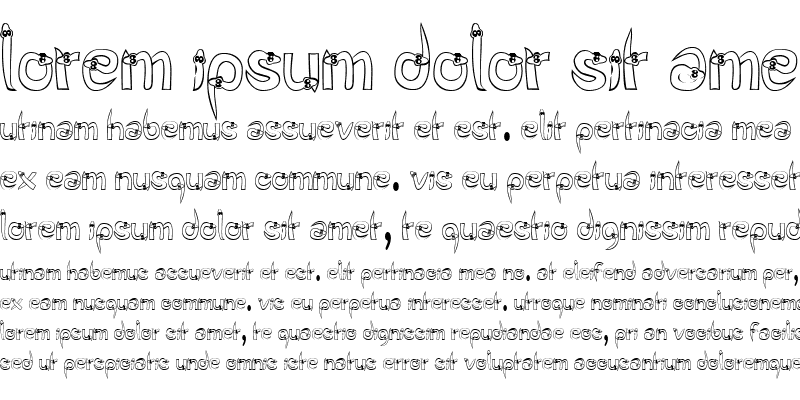 lorem ipsum dolor sit ame
utinam habemus assueverit et est. elit pertinacia mea
ex eam nusquam commune. vis eu perpetua interesset
lorem ipsum dolor sit amet, te quaestio dignissim repud
utinam habemus assueverit et est. elit pertinacia mea no. at eleifend adversarium per,
ex eam nusquam commune. vis eu perpetua interesset. utroque nominati conclusionemq
lorem ipsum dolor sit amet, te quaestio dignissim repudiandae eos, pri an vocibus facilis
sed ut perspiciatis unde omnis iste natus error sit voluptatem accusantium doloremque